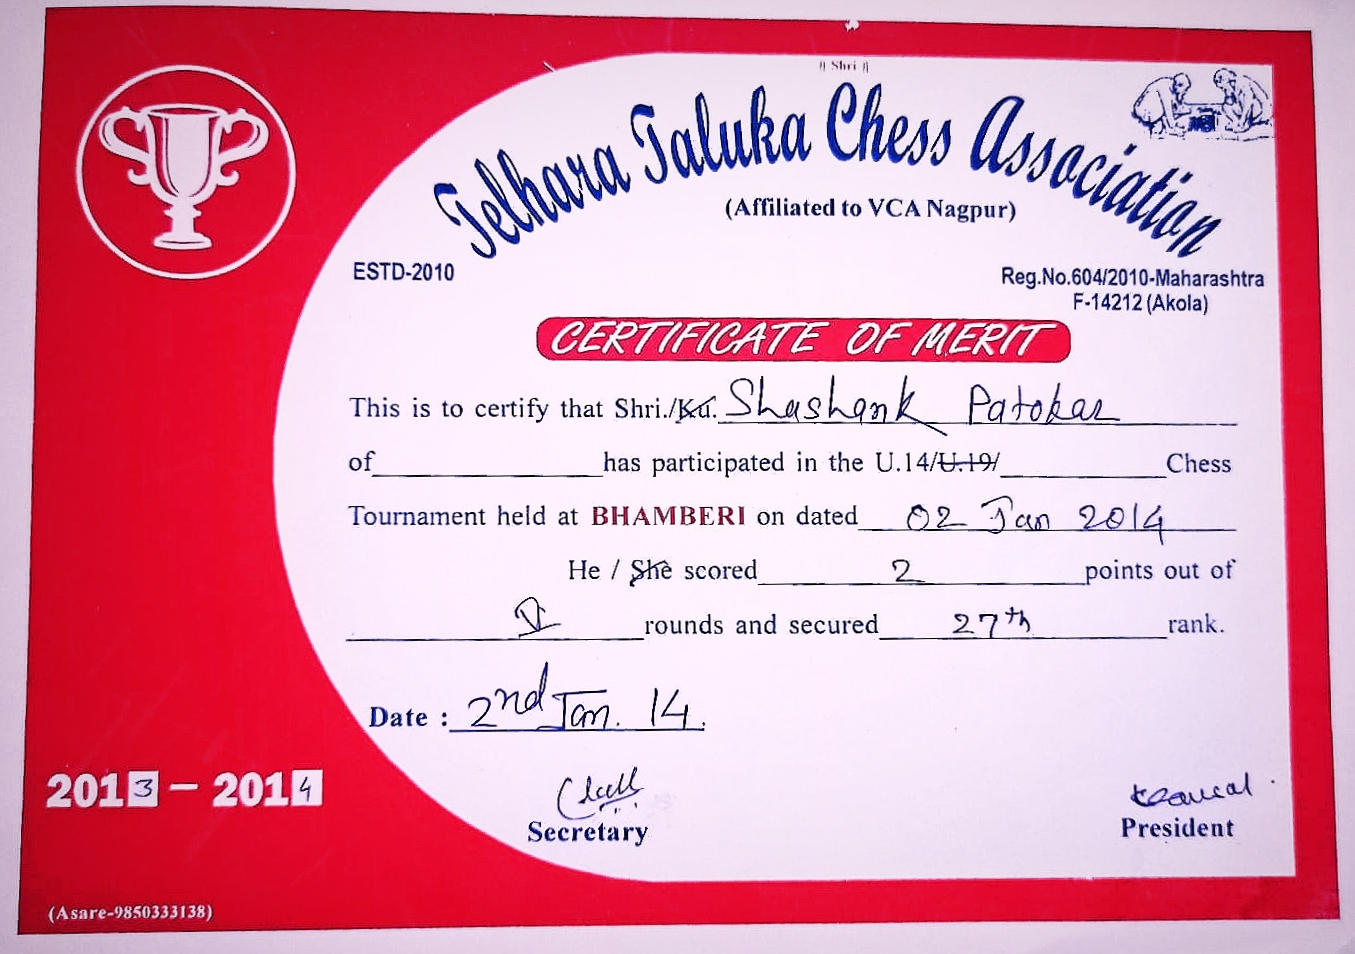 ॥ Shri ॥
Telhara Taluka Chess Association
(Affiliated to VCA Nagpur)
ESTD-2010
Reg.No.604/2010-Maharashtra
F-14212 (Akola)
CERTIFICATE OF MERIT
This is to certify that Shri./Ku. Shashank Patokar
of has participated in the U.14/U.19/ Chess
Tournament held at BHAMBERI on dated 02 Jan 2014
He / She scored 2 points out of
V rounds and secured 27th rank.
Date : 2nd Jan. 14.
2013 - 2014
Secretary
President
(Asare-9850333138)